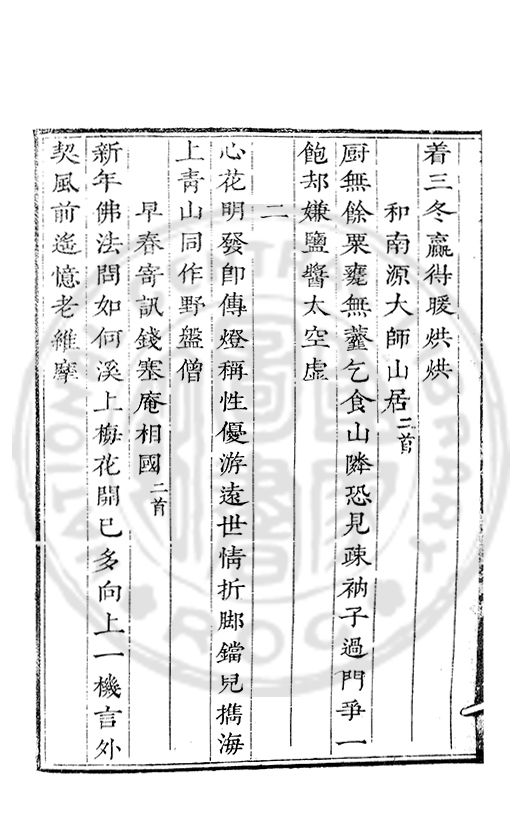 着三冬贏得暖烘烘
和南源大師山居二首
厨無餘粟甕無虀乞食山隣恐見疎衲子過門爭一
飽却嫌鹽醬太空虛
二
心花明發卽傳燈稱性優游遠世情折脚鐺兒擕海
上靑山同作野盤僧
早春寄訊錢塞庵相國二首
新年佛法問如何溪上梅花開已多向上一機言外
契風前遙憶老維摩